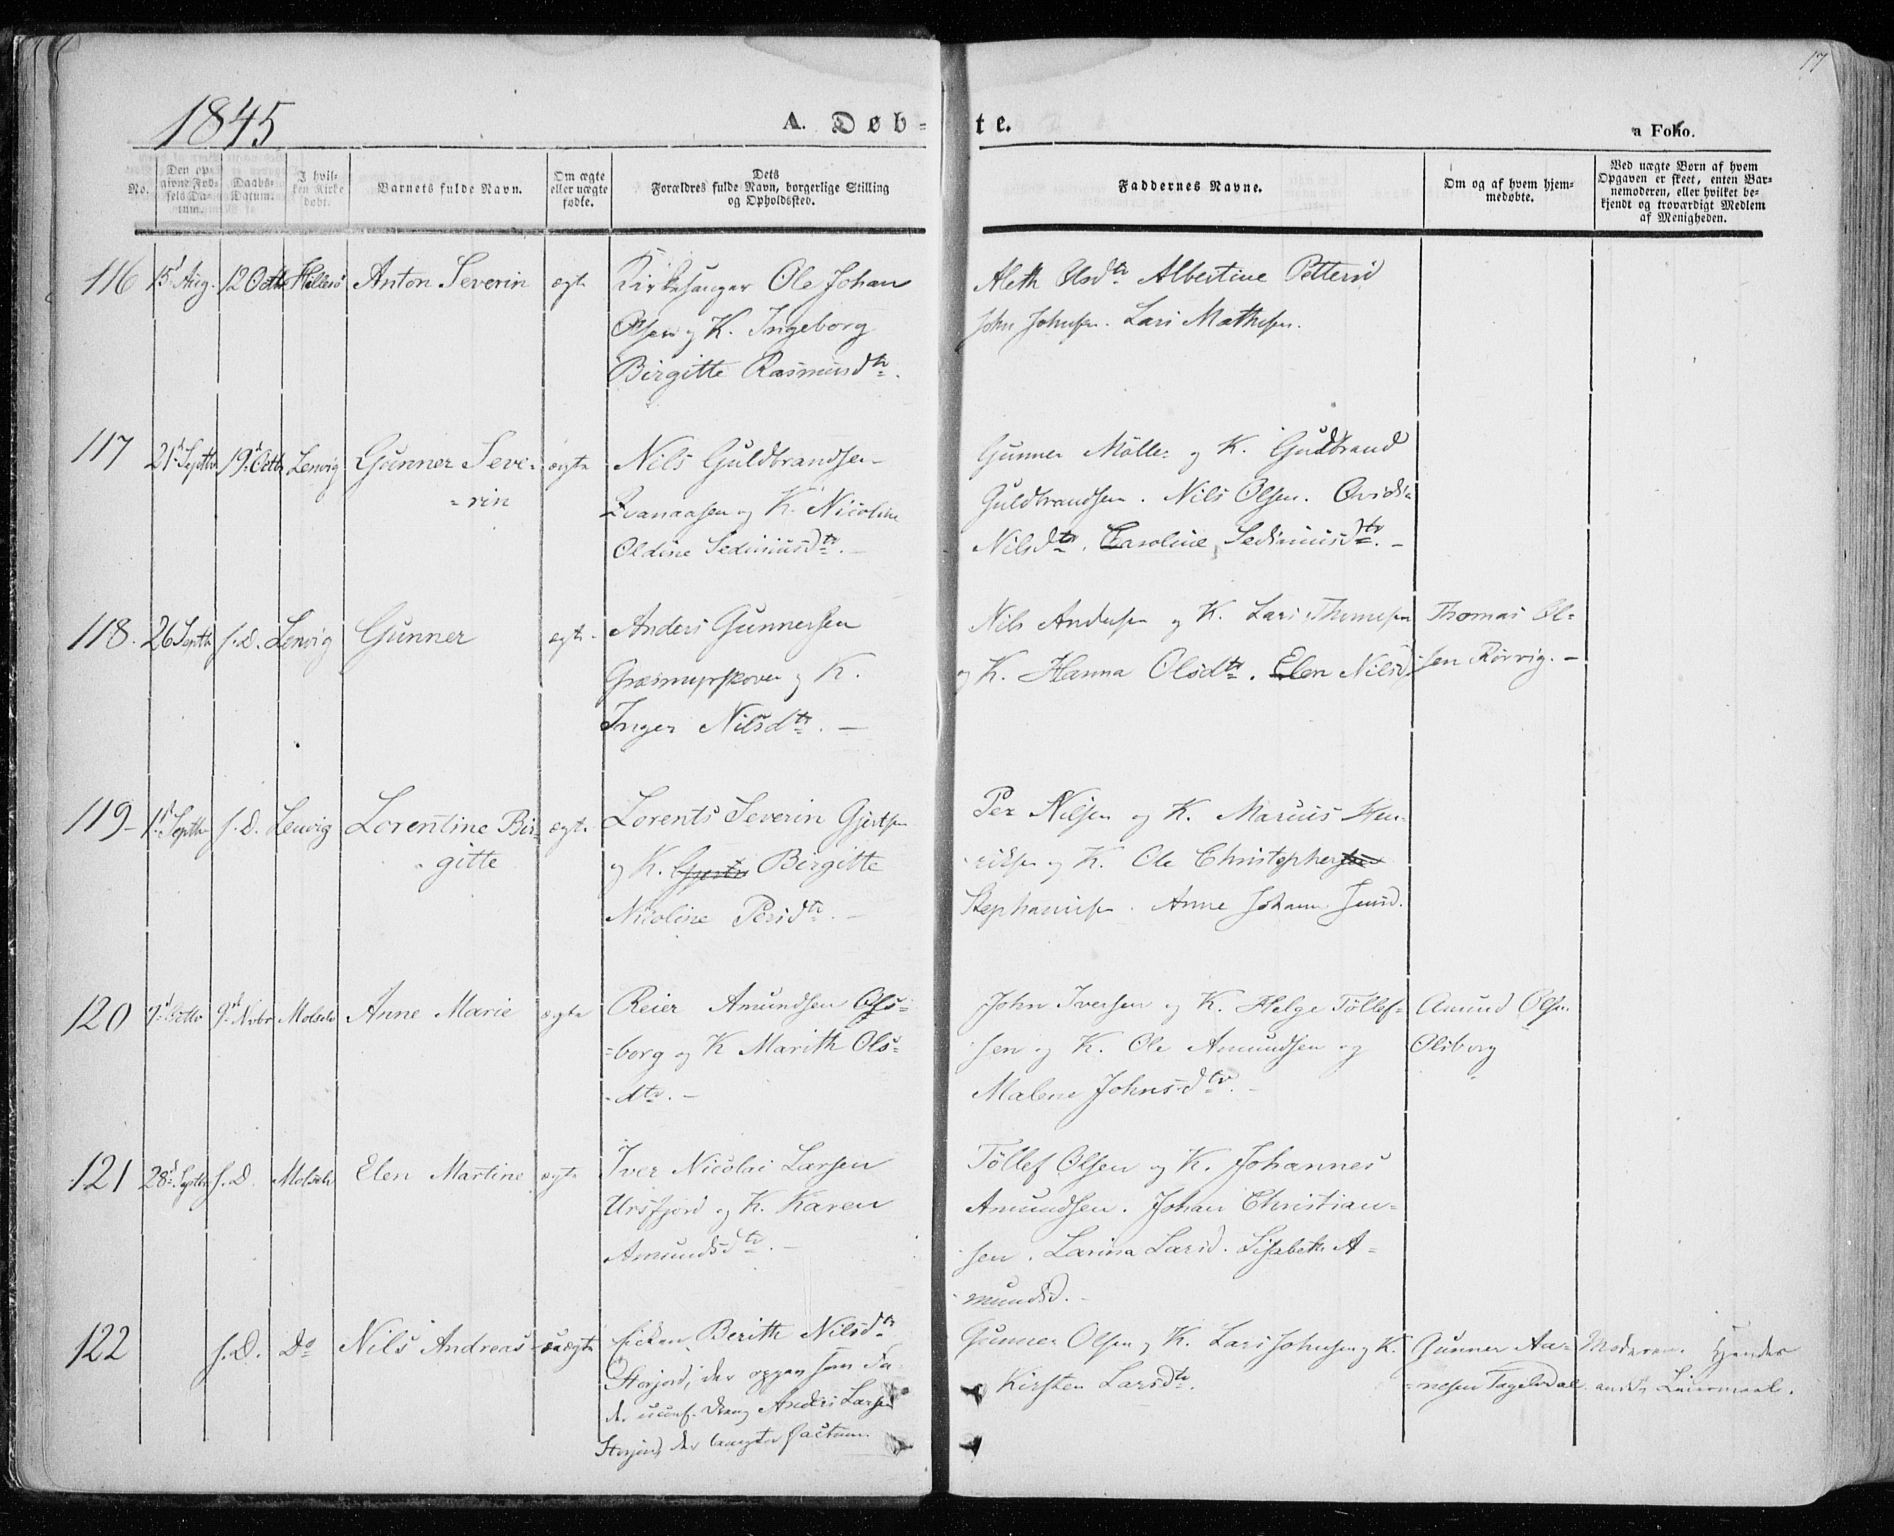 17
1845
A. Døb-te.
a Folio.
No.
Den op-
givne Fød-
sels Da-
tum.
Daabs-
Datum.
I hvil-
ken Kirke
døbt.
Barnets fulde Navn.
Om ægte
eller uægte
fødte.
Dets
Forældres fulde Navn, borgerlige Stilling
og Opholdssted.
Faddernes Navne.
Om og af hvem hjem-
medøbte.
Ved uægte Børn af hvem
Opgaven er skeet, enten Bar-
nemoderen, eller hvilket be-
kjendt og troværdigt Medlem
af Menigheden.
116 15 Aug. 12 Octb Hillesø Anton Severin ægte Kirkesanger Ole Johan
Olsen og K. Ingeborg
Birgitte Rasmusdtr.
Aleth Olsdtr Albertine Pettersd
John Johnsen. Lars Mathisen.
117 21 Septbr 19 Octbr Lenvig Gunner Seve-
-rin
ægte Nils Guldbrandsen
og K. Nicoline
Oldine Sediniusdtr. -
Gunner Møller og K. Gudbrand
Guldbrandsen. Nils Olsen.
Nilsdtr. Caroline Sediniusdtr. -
118. 26 Septbr s.D. Lenvig Gunner ægte Anders Gunnersen
Græsmyrskoven og K.
Inger Nilsdtr. -
Nils Andersen og K. Lars Thomesen
og K. Hanna Olsdtr. Elen Nilsd
Thomas Ol-
sen Rörvig. -
119 1 Septbr s.D. Lenvig Lorentine Bir-
-gitte
ægte Lorents Severin Gjertsen
og K. Birgitte
Nicoline Persdtr. -
Per Nilsen og K. Marius Hen-
-riksen og K. Ole Christophersen
Stephanusen. Anne Johanne Jensd.
120 9 Octbr 9 Nvbr Molselv Anne Marie ægte Reier Amundsen Ols-
-borg og K Marith Ols-
-dtr. -
John Iversen og K. Helge Töllef-
sen og K. Ole Amundsen og
Malene Johnsdtr. -
Amund Olsen
Olsborg
121 28 Septbr s.D. Molselv Elen Martine ægte Iver Nicolai Larsen
Ursfjord og K. Karen
Amundsdtr. -
Töllef Olsen og K. Johannes
Amundsen. Johan Christian-
sen. Larina Larsd. Lisabeth A-
mundsd. -
122 s.D. Do Nils Andreas uægte Pigen Berith Nilsdtr
Storjord, der opgav som Fa-
der uconf. Dreng Anders Larsen
Storjord, der benegter factum.
Gunner Olsen og K. Lars Johnsen og K.
Kirsten Larsdtr.
Gunner Aa-
-nesen Fagelidal
Moderen. Hendes
andet Leiermaal.